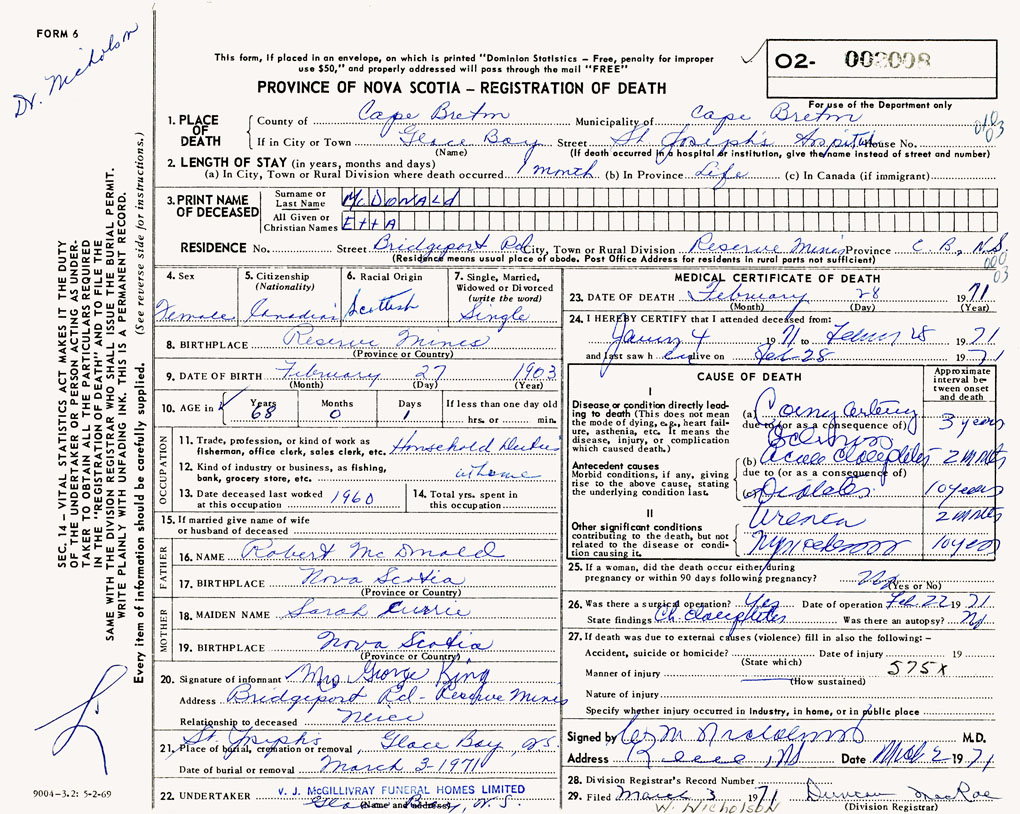 FORM 6
Dr. Nicholson
This form, if placed in an envelope, on which is printed "Dominion Statistics - Free, penalty for improper
use $50," and properly addressed will pass through the mail "FREE"
PROVINCE OF NOVA SCOTIA – REGISTRATION OF DEATH
O2- 002008
For use of the Department only
1. PLACE OF DEATH
County of Cape Breton Municipality of Cape Breton
If in City or Town Glace Bay Street St Joseph's Hospital House No.
(Name) (If death occurred in a hospital or institution, give the name instead of street and number)
010
03
2. LENGTH OF STAY (in years, months and days)
(a) In City, Town or Rural Division where death occurred 1 month (b) In Province Life (c) In Canada (if immigrant)
3. PRINT NAME OF DECEASED
Surname or Last Name McDONALd
All Given or Christian Names EttA
RESIDENCE No. Street Bridgeport Rd City, Town or Rural Division Reserve Mines Province C. B., N.S
(Residence means usual place of abode. Post Office Address for residents in rural parts not sufficient)
000
03
SEC. 14 – VITAL STATISTICS ACT MAKES IT THE DUTY
OF THE UNDERTAKER OR PERSON ACTING AS UNDER-
TAKER TO OBTAIN ALL THE PARTICULARS REQUIRED
IN THE "REGISTRATION OF DEATH" AND TO FILE THE
SAME WITH THE DIVISION REGISTRAR WHO SHALL ISSUE THE BURIAL PERMIT.
WRITE PLAINLY WITH UNFADING INK. THIS IS A PERMANENT RECORD.
Every item of information should be carefully supplied. (See reverse side for instructions.)
4. Sex Female
5. Citizenship (Nationality) Canadian
6. Racial Origin Scottish
7. Single, Married, Widowed or Divorced (write the word) Single
8. BIRTHPLACE Reserve Mines
(Province or Country)
9. DATE OF BIRTH February 27 1903
(Month) (Day) (Year)
10. AGE in Years 68 Months 0 Days 1 If less than one day old
hrs. or min.
OCCUPATION
11. Trade, profession, or kind of work as
fisherman, office clerk, sales clerk, etc. Household Duties
12. Kind of industry or business, as fishing,
bank, grocery store, etc. at home
13. Date deceased last worked
at this occupation 1960
14. Total yrs. spent in
this occupation
15. If married give name of wife
or husband of deceased
FATHER
16. NAME Robert McDonald
17. BIRTHPLACE Nova Scotia
(Province or Country)
MOTHER
18. MAIDEN NAME Sarah Currie
19. BIRTHPLACE Nova Scotia
(Province or Country)
20. Signature of informant Mrs. George King
Address Bridgeport Rd - Reserve Mines
Relationship to deceased Neice
21. St. Joseph's Glace Bay, N.S.
Place of burial, cremation or removal
Date of burial or removal March 3 1971
22. UNDERTAKER V. J. McGILLIVRAY FUNERAL HOMES LIMITED
Glace Bay, N.S.
(Name and Address)
9004-3.2: 5-2-69
MEDICAL CERTIFICATE OF DEATH
23. DATE OF DEATH February 28 1971
(Month) (Day) (Year)
24. I HEREBY CERTIFY that I attended deceased from:
19 71 to 28 19 71
and last saw h alive on Feb 28 19 71
CAUSE OF DEATH
Approximate interval between onset and death
I
Disease or condition directly leading to death (This does not mean the mode of dying, e.g., heart failure, asthenia, etc. It means the disease, injury, or complication which caused death.)
(a) 3 years
due to (or as a consequence of)
Antecedent causes
Morbid conditions, if any, giving rise to the above cause, stating the underlying condition last.
(b)
due to (or as a consequence of)
(c) Diabetes 10 years
II
Other significant conditions
contributing to the death, but not related to the disease or condition causing it.
Uremia
10 years
25. If a woman, did the death occur either during
pregnancy or within 90 days following pregnancy? No
(Yes or No)
26. Was there a surgical operation? Yes Date of operation Feb. 22 19 71
State findings Was there an autopsy? No
27. If death was due to external causes (violence) fill in also the following: –
Accident, suicide or homicide? Date of injury 19
(State which)
Manner of injury 575X
(How sustained)
Nature of injury
Specify whether injury occurred in industry, in home, or in public place
Signed by M.D.
Address Date Mch 2 1971
28. Division Registrar's Record Number
29. Filed March 3 1971 Duncan MacRae
W. Nicholson
(Division Registrar)